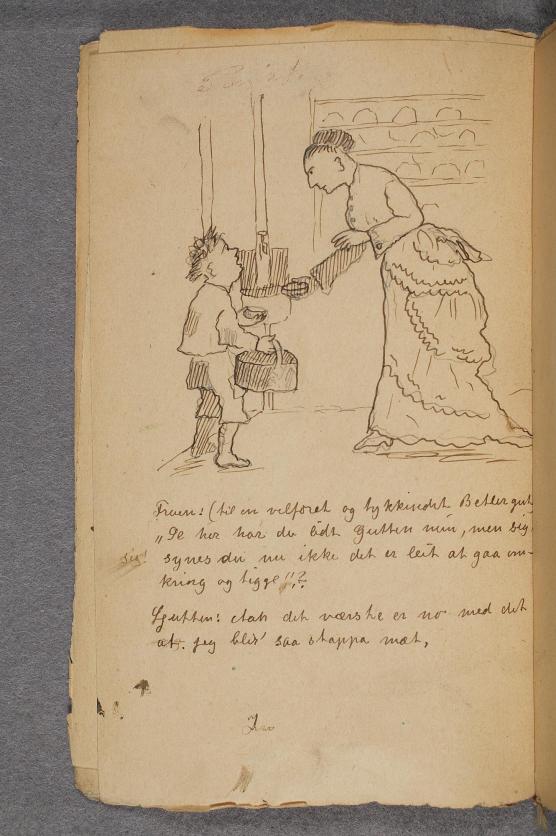 Fruen: (til en velföret og tykkindet Betlergut
"Se her har du lidt Gutten min, men sig
sig!
synes du nu ikke det er leit at gaa om-
kring og tigge"?
Gutten: det værste er no med det
at jeg blir saa stappa mæt,